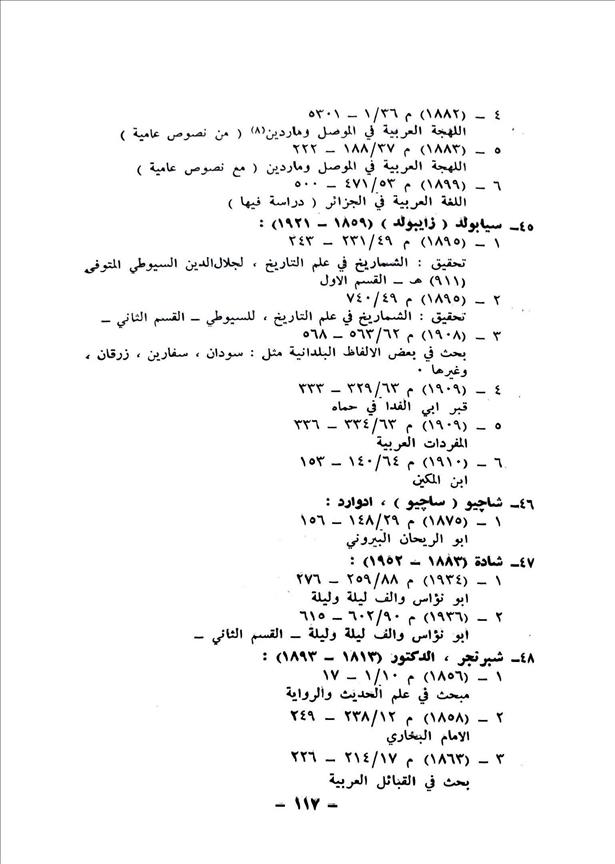 ٤ ـ (١٨٨٢) م ١/٣٦ ـ ٥٣٠١
اللهجة العربية في الموصل وماردين(٨) ( من نصوص عامية )
٥ ـ (١٨٨٣) م ١٨٨/٣٧ ـ ٢٢٢
اللهجة العربية في الموصل وماردين ( مع نصوص عامية )
٦ ـ (١٨٩٩) م ٤٧١/٥٣ ـ ٥٠٠
اللغة العربية في الجزائر ( دراسة فيها )
٤٥ـ سيابولد ( زايبولد ) (١٨٥٩ ـ ١٩٢١) :
١ ـ (١٨٩٥) م ٢٣١/٤٩ ـ ٢٤٣
تحقيق : الشماريخ في علم التاريخ ، لجلال الدين السيوطي المتوفى
(٩١١) هـ ـ القسم الاول
٢ ـ (١٨٩٥) م ٧٤٠/٤٩
تحقيق : الشماريخ في علم التاريخ ، للسيوطي ـ القسم الثاني ـ
٣ ـ (١٩٠٨) م ٥٦٣/٦٢ ـ ٥٦٨
بحث في بعض الالفاظ البلدانية مثل : سودان ، سفارين ، زرقان ،
وغيرها ٠
٤ ـ (١٩٠٩) م ٣٢٩/٦٣ ـ ٣٣٣
قبر ابي الفدا في حماه
٥ ـ (١٩٠٩) م ٣٣٤/٦٣ ـ ٣٣٦
المفردات العربية
٦ ـ (١٩١٠) م ١٤٠/٦٤ ـ ١٥٣
ابن المكين
٤٦ـ شاچيو ( ساچيو ) ، ادوارد :
١ ـ (١٨٧٥) م ١٤٨/٢٩ ـ ١٥٦
ابو الريحان البيروني
٤٧ـ شادة (١٨٨٣ ـ ١٩٥٢) :
١ ـ (١٩٣٤) م ٢٥٩/٨٨ ـ ٢٧٦
ابو نؤاس والف ليلة وليلة
٢ ـ (١٩٣٦) م ٦٠٢/٩٠ ـ ٦١٥
ابو نؤاس والف ليلة وليلة ـ القسم الثاني ـ
٤٨ـ شبرنجر ، الدكتور (١٨١٣ ـ ١٨٩٣) :
١ ـ (١٨٥٦) م ١/١٠ ـ ١٧
مبحث في علم الحديث والرواية
٢ ـ (١٨٥٨) م ٢٣٨/١٢ ـ ٢٤٩
الامام البخاري
٣ ـ (١٨٦٣) م ٢١٤/١٧ ـ ٢٢٦
بحث في القبائل العربية
ـ ١١٧ ـ